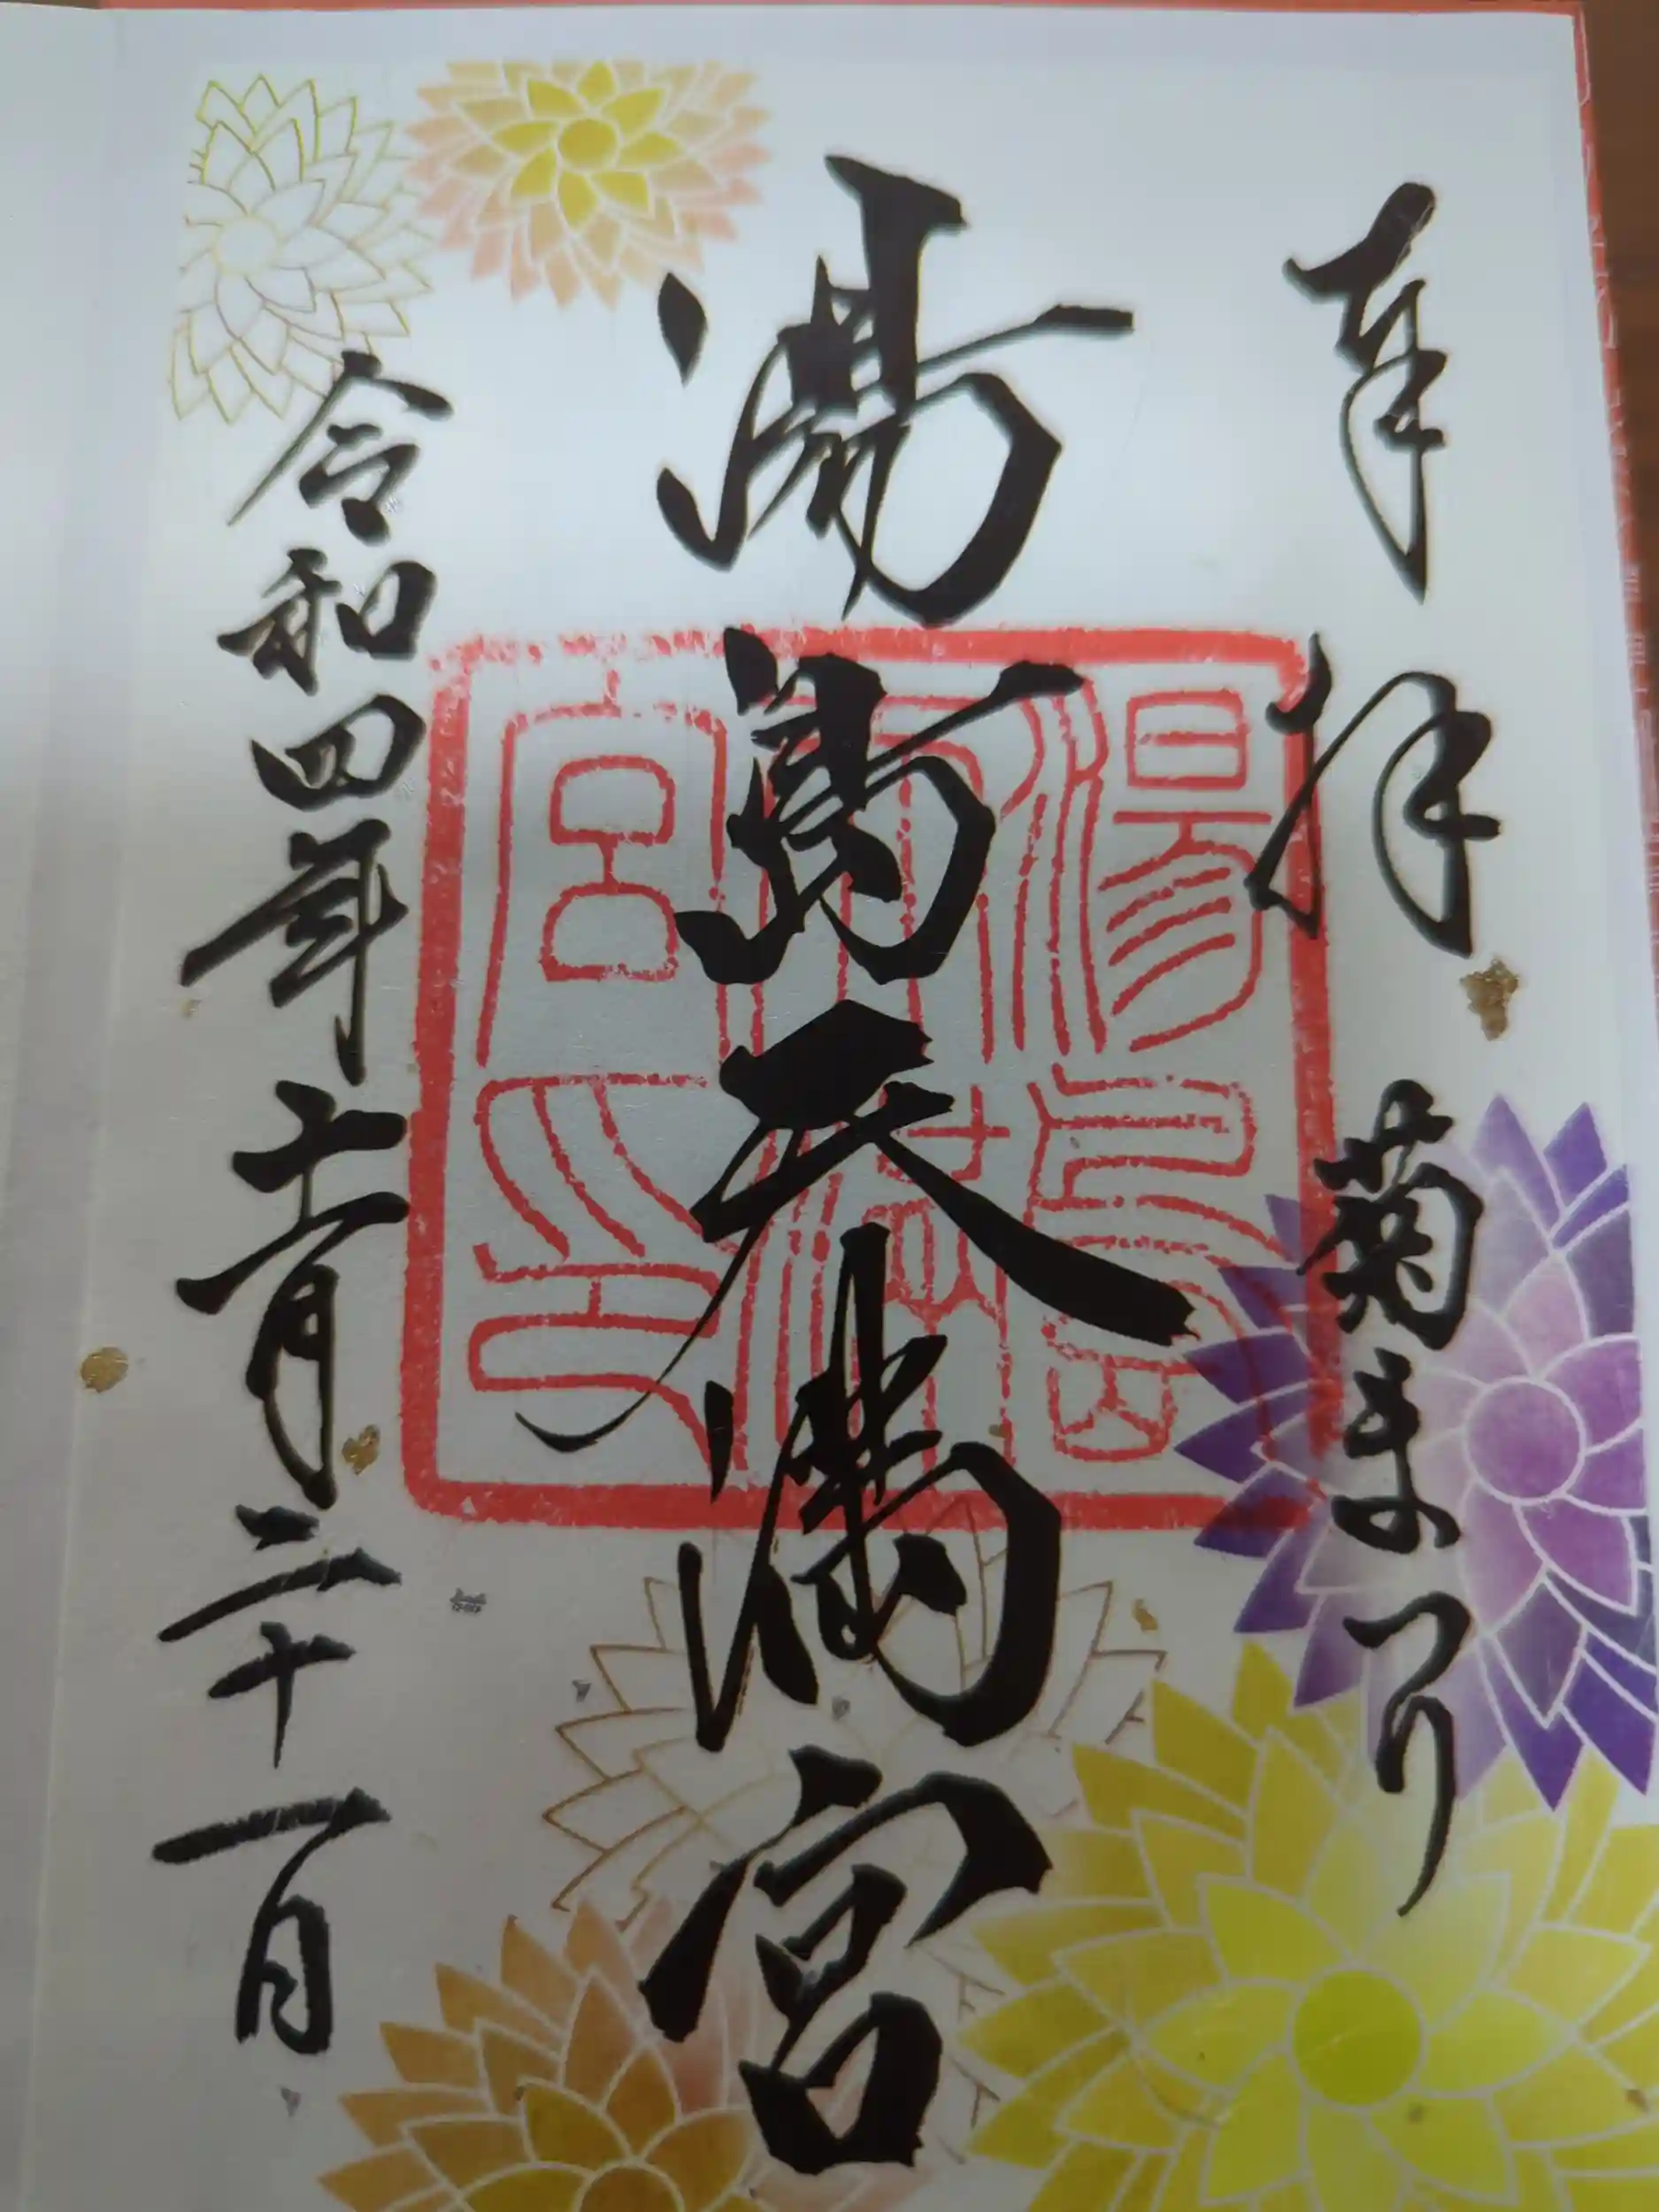 奉拝 菊まつり
湯島天満宮
令和四年十一月二十一日
湯島天満宮印